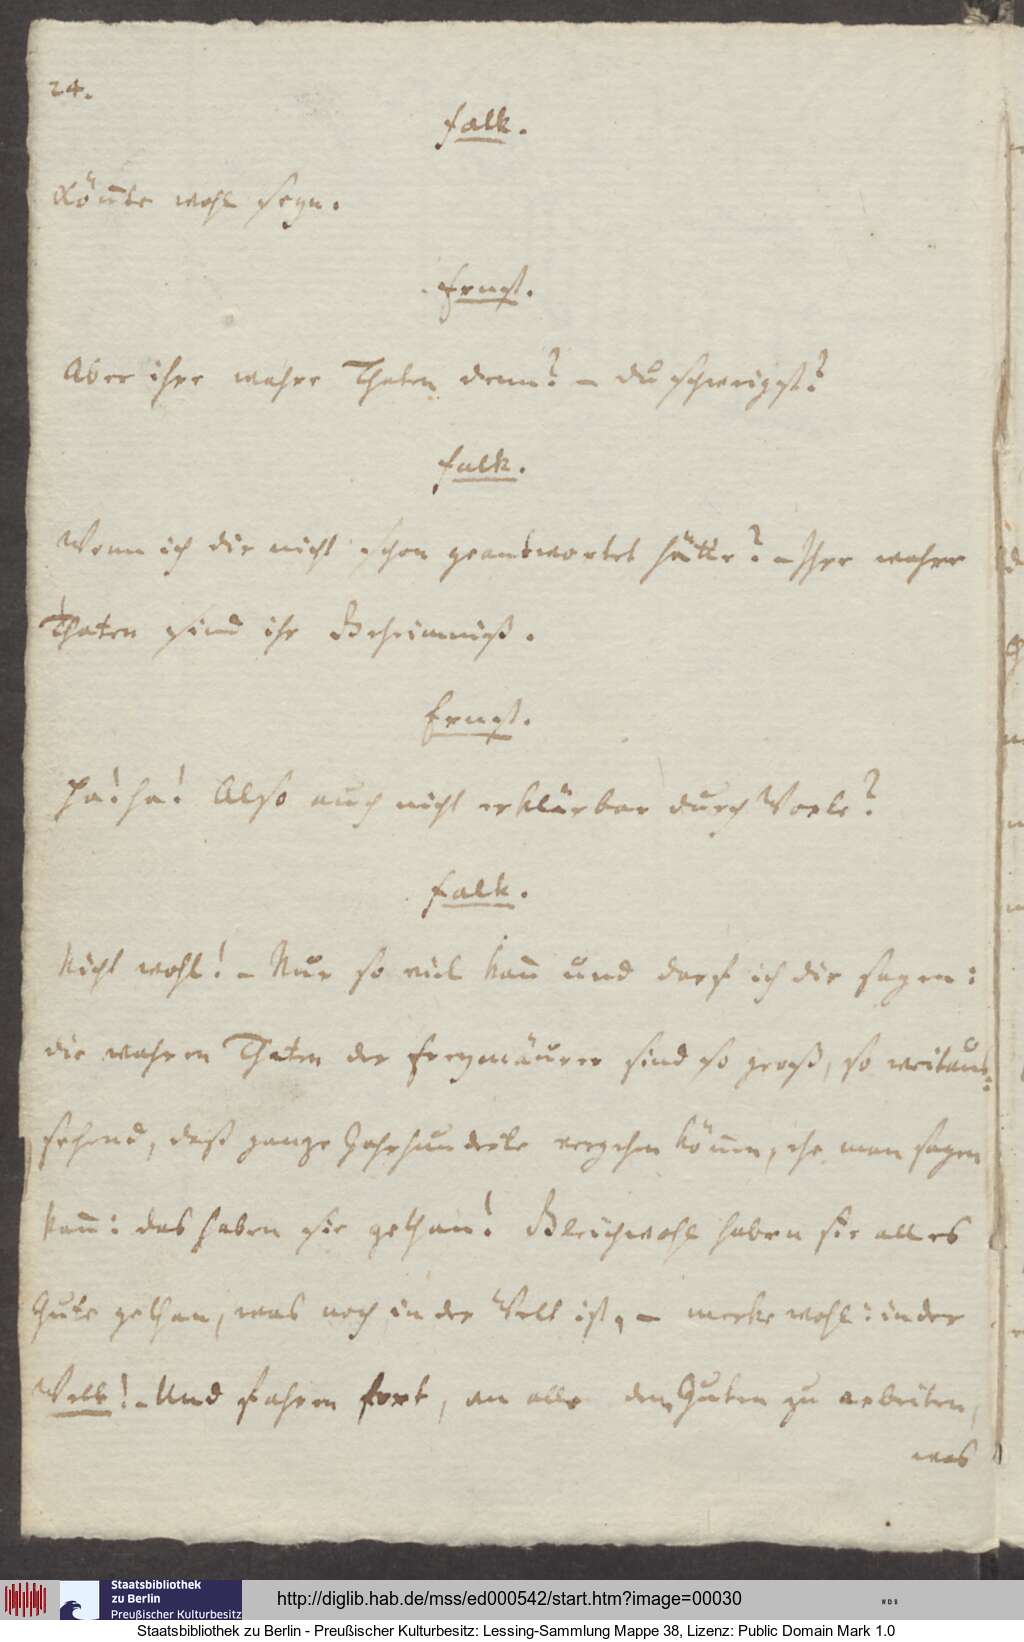 24.
Falk.
Könnte wohl seyn.
Ernst.
Aber ihre wahre Thaten denn? – du schweigst?
Falk.
Wenn ich dir nicht schon geantwortet hätte? – Ihre wahre
Thaten sind ihr Geheimniß.
Ernst.
Ha! ha! Also auch nicht erklärbar durch Worte?
Falk.
Nicht wohl! – Nur so viel kann̄ und darf ich dir sagen:
die wahren Thaten der Freymäurer sind so groß, so weitaus-
sehend, daß ganze Jahrhunderte vergehen können, ehe man sagen
kann̄: das haben sie gethan! Gleichwohl haben sie alles
Gute gethan, was noch in der Welt ist, – merke wohl: in der
Welt! – Und fahren fort, an alle dem Guten zu arbeiten,
was
Staatsbibliothek
zu Berlin
Preußischer Kulturbesitz
http://diglib.hab.de/mss/ed000542/start.htm?image=00030
WDB
Staatsbibliothek zu Berlin - Preußischer Kulturbesitz: Lessing-Sammlung Mappe 38, Lizenz: Public Domain Mark 1.0